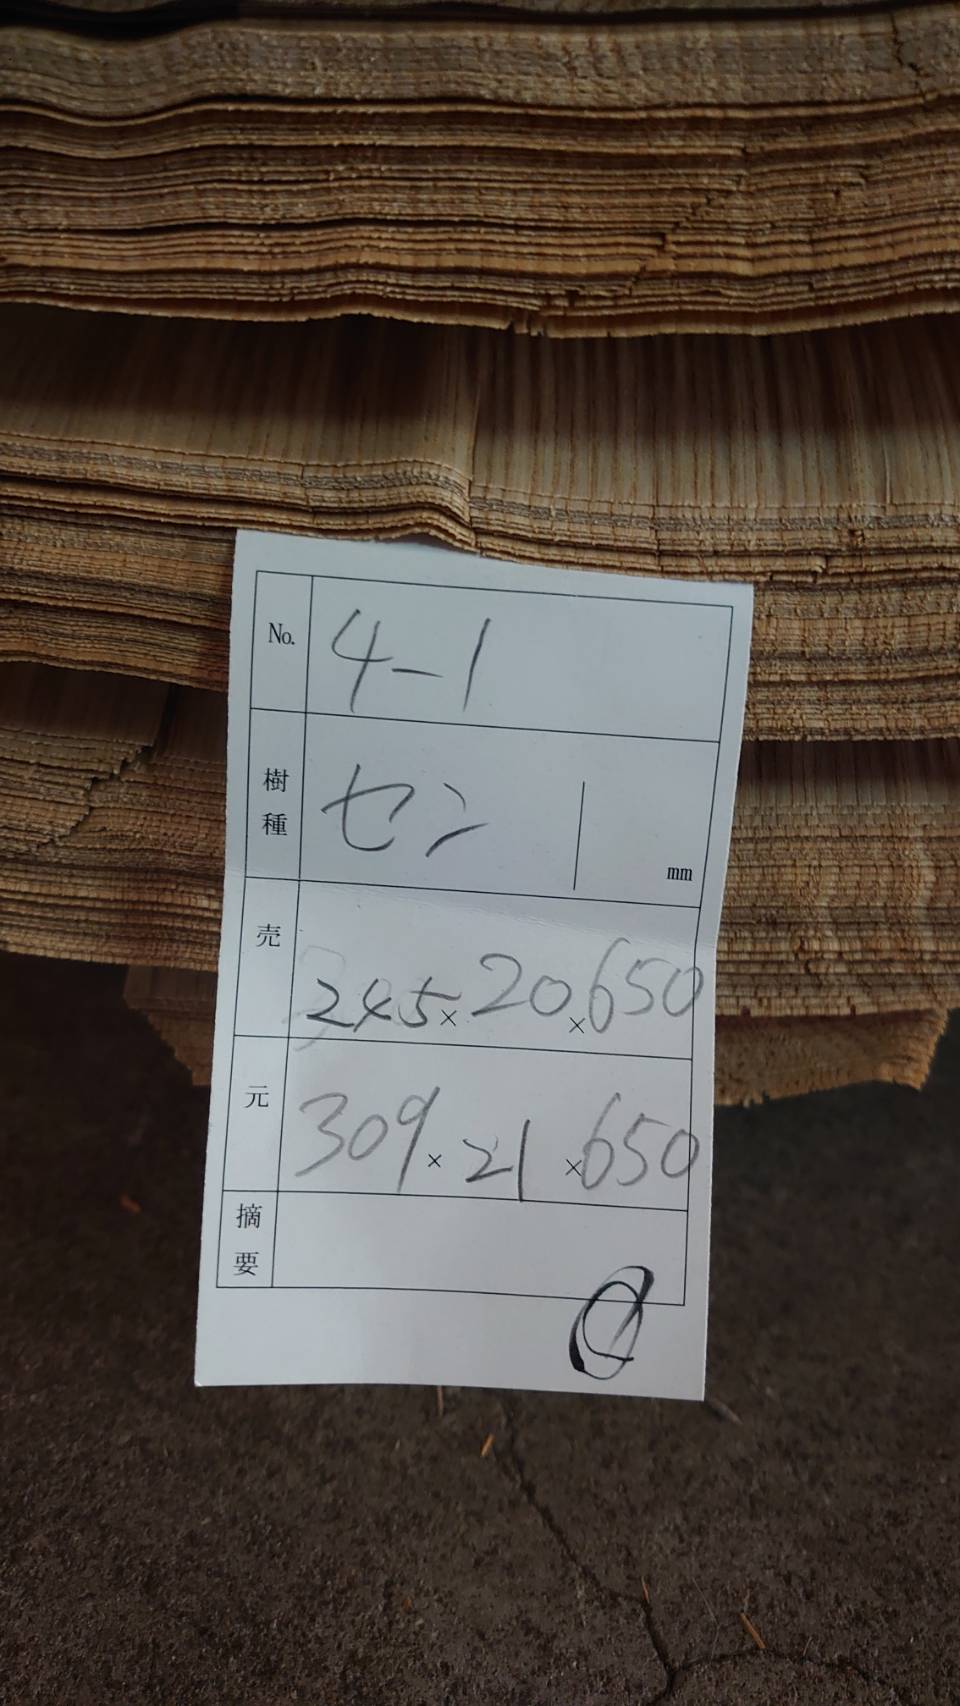 No. 4-1
樹種 セン 1 mm
売 245×20×650
元 309×21×650
摘要